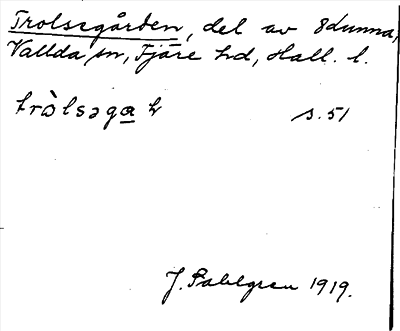 Trolsegården, del av Sdunna,
Vallda sn, Fjäre hd, Hall. l.
tròlsəga h s. 51
J. Sahlgren 1919.